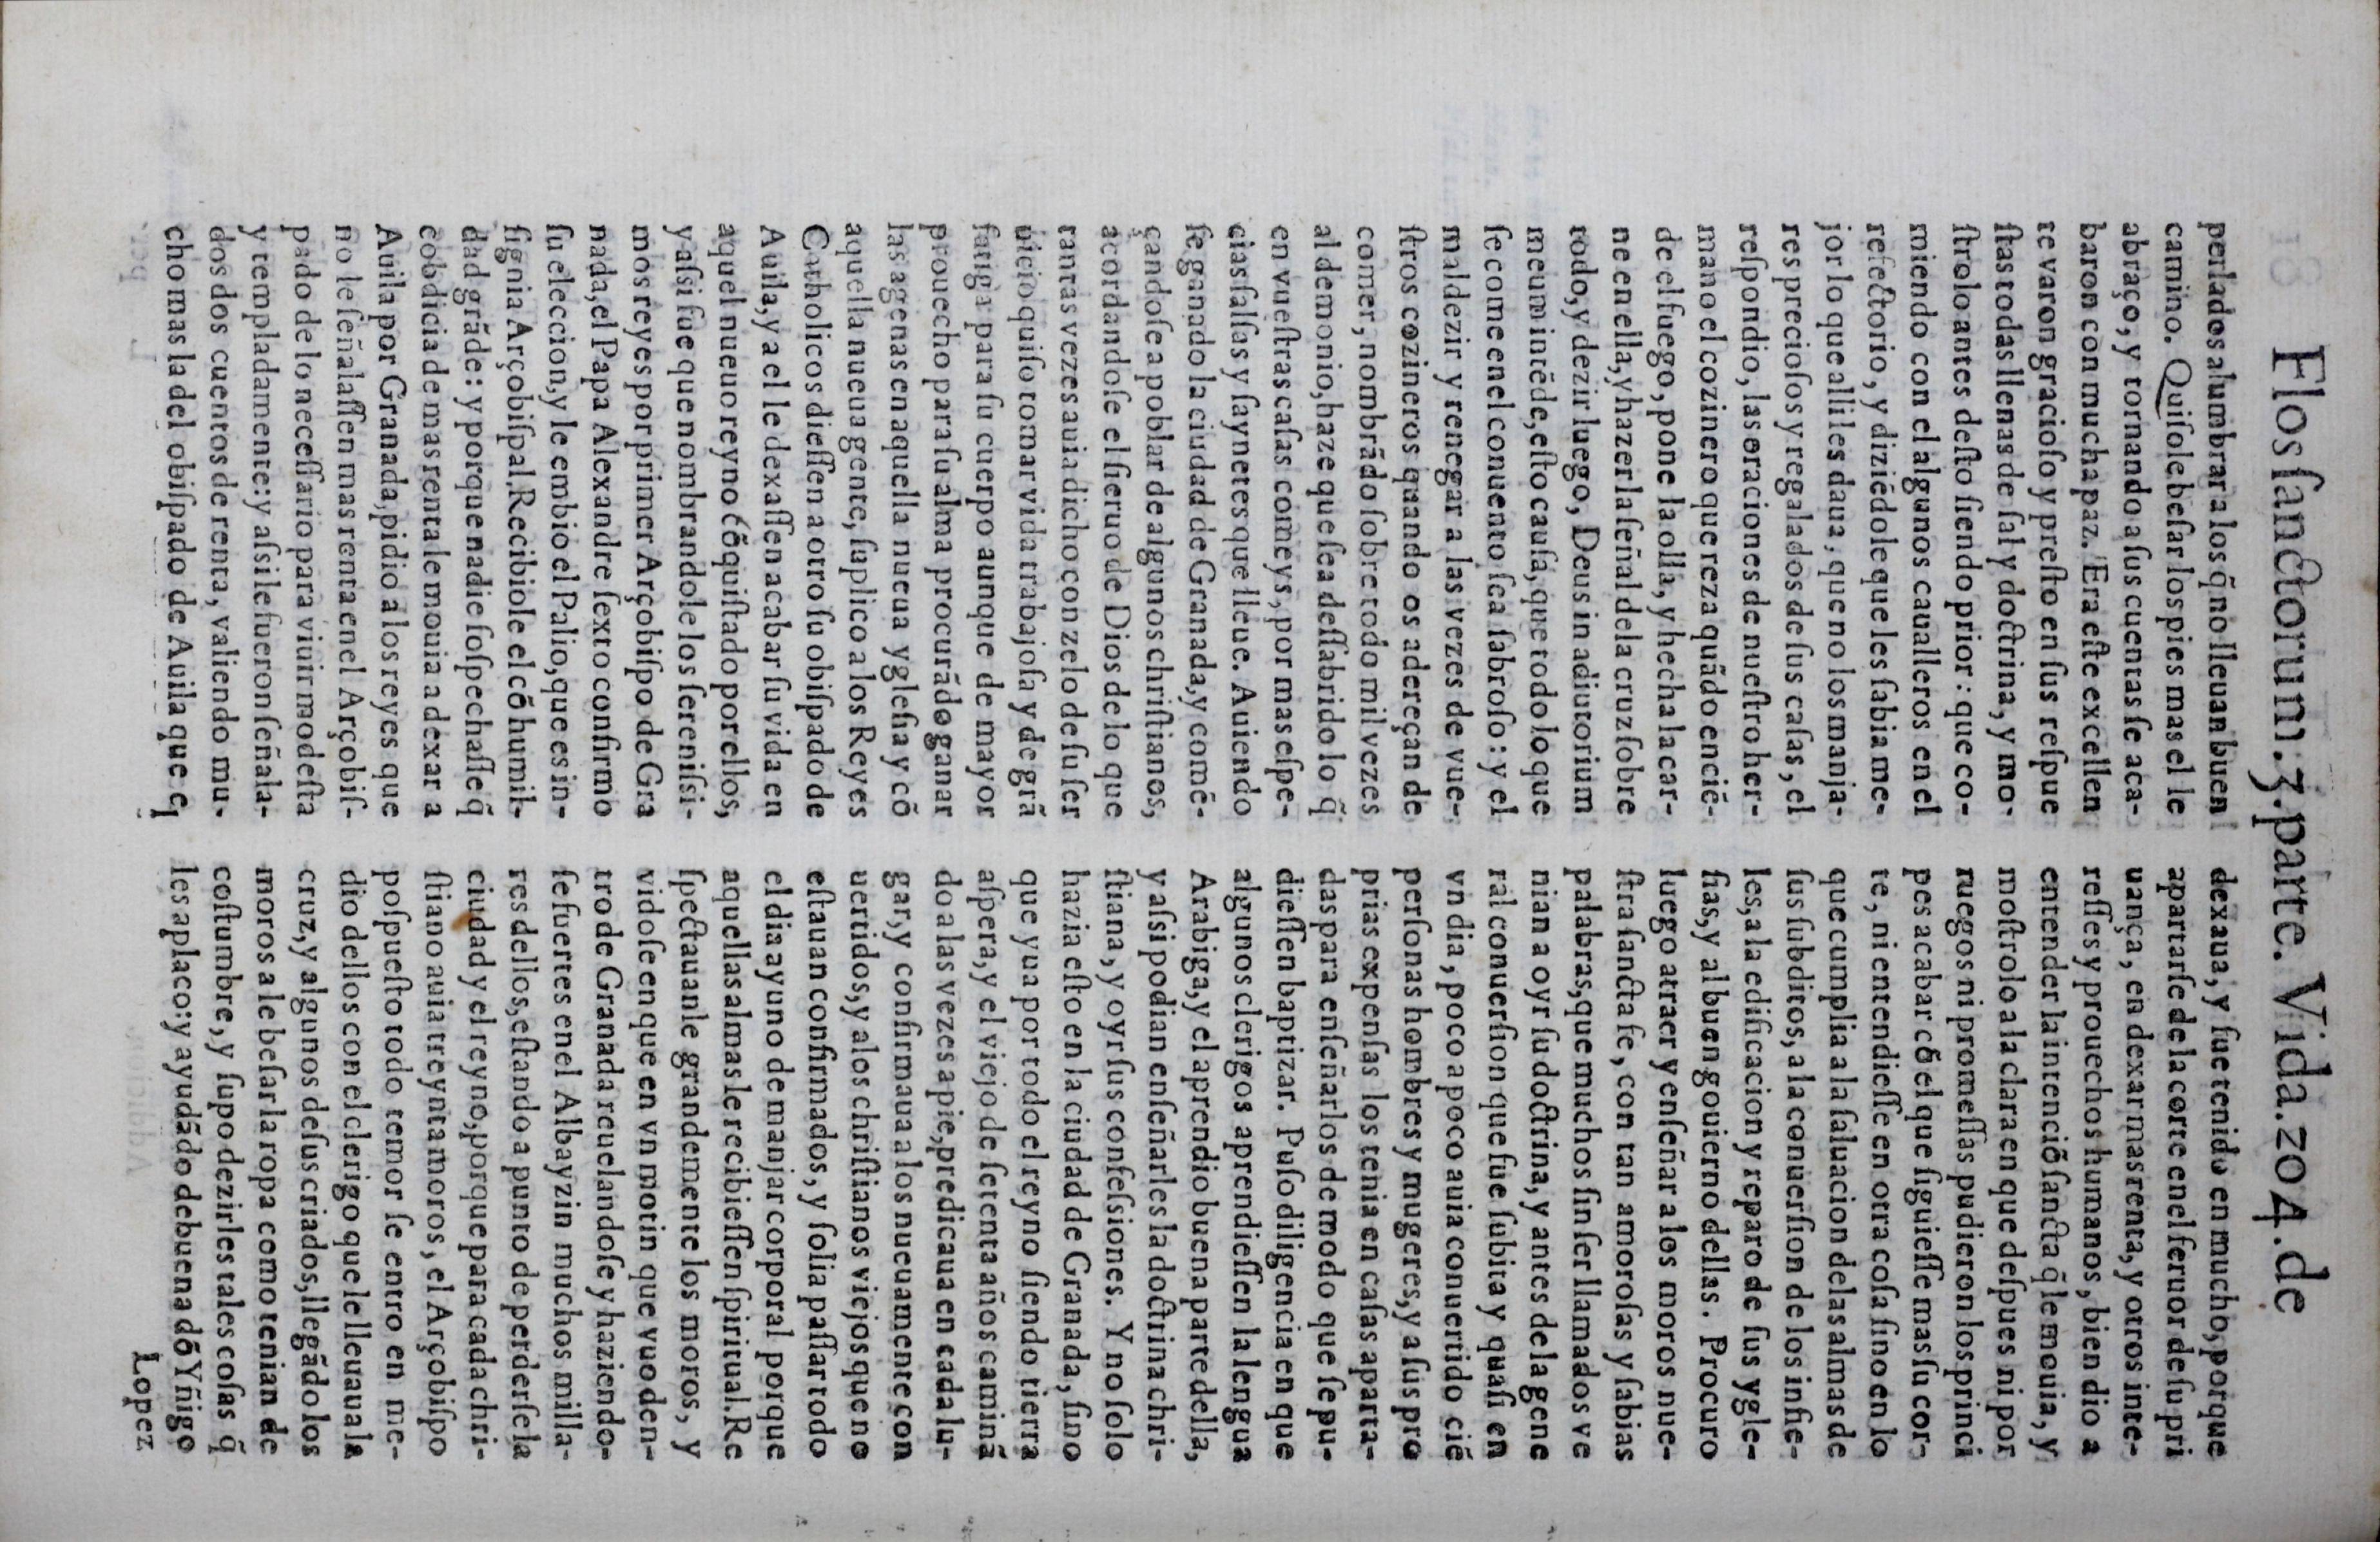 Flos ſanctorum.3.parte. Vida.204.de
perlados alumbrar a los q̃ no lleuan buen
camino. Quiſole beſar los pies mas el le
abraço, y tornando a ſus cuentas ſe aca-
baron con mucha paz. Era eſte excellen
te varon gracioſo y preſto en ſus reſpue
ſtas todas llenas de ſal y doctrina, y mo-
ſtrolo antes deſto ſiendo prior: que co-
miendo con el algunos caualleros en el
refectorio, y diziẽdole que les ſabia me-
jor lo que alli les daua, que no los manja-
res precioſos y regalados de ſus caſas, el
reſpondio, las oraciones de nueſtro her-
mano el cozinero que reza quãdo enciẽ-
de el fuego, pone la olla, y hecha la car-
ne en ella, y hazer la ſeñal de la cruz ſobre
todo, y dezir luego, Deus in adiutorium
meum intẽde, eſto cauſa, que todo lo que
ſe come en el conuento ſea ſabroſo: y el
maldezir y renegar a las vezes de vue-
ſtros cozineros quando os adereçan de
comer, nombrãdo ſobre todo mil vezes
al demonio, haze que ſea deſſabrido lo q̃
en vueſtras caſas comeys, por mas eſpe-
cias falſas y ſaynetes que lleue. Auiendo
ſe ganado la ciudad de Granada, y comẽ-
çandoſe a poblar de algunos chriſtianos,
acordandoſe el ſieruo de Dios de lo que
tantas vezes auia dicho con zelo de ſu ſer
uicio quiſo tomar vida trabajoſa y de grã
fatiga para ſu cuerpo aunque de mayor
prouecho para ſu alma procurãdo ganar
las agenas en aquella nueua ygleſia y cõ
aquella nueua gente, ſuplico a los Reyes
Catholicos dieſſen a otro ſu obiſpado de
Auila, y a el le dexaſſen acabar ſu vida en
aquel nueuo reyno cõquiſtado por ellos,
y aſsi fue que nombrandole los ſereniſsi-
mos reyes por primer Arçobiſpo de Gra
nada, el Papa Alexandre ſexto confirmo
ſu eleccion, y le embio el Palio, que es in-
ſignia Arçobiſpal. Recibiole el cõ humil-
dad grãde: y porque nadie ſoſpechaſſe q̃
cobdicia de mas renta le mouia a dexar a
Auila por Granada, pidio a los reyes que
no le ſeñalaſſen mas renta en el Arçobiſ-
pado de lo neceſſario para viuir modeſta
y templadamente: y aſsi le fueron ſeñala-
dos dos cuentos de renta, valiendo mu-
cho mas la del obiſpado de Auila que el
dexaua, y fue tenido en mucho, porque
apartarſe de la corte en el feruor de ſu pri
uança, en dexar mas renta, y otros inte-
reſſes y prouechos humanos, bien dio a
entender la intenciõ ſancta q̃ le mouia, y
moſtrolo a la clara en que deſpues ni por
ruegos ni promeſſas pudieron los princi
pes acabar cõ el que ſiguieſſe mas ſu cor-
te, ni entendieſſe en otra coſa ſino en lo
que cumplia a la ſaluacion de las almas de
ſus ſubditos, a la conuerſion de los infie-
les, a la edificacion y reparo de ſus ygle-
ſias, y al buen gouierno dellas. Procuro
luego atraer y enſeñar a los moros nue-
ſtra ſancta fe, con tan amoroſas y ſabias
palabras, que muchos ſin ſer llamados ve
nian a oyr ſu doctrina, y antes de la gene
ral conuerſion que fue ſubita y quaſi en
vn dia, poco a poco auia conuertido ciẽ
perſonas hombres y mugeres, y a ſus pro
prias expenſas los tenia en caſas aparta-
das para enſeñarlos de modo que ſe pu-
dieſſen baptizar. Puſo diligencia en que
algunos clerigos aprendieſſen la lengua
Arabiga, y el aprendio buena parte della,
y aſsi podian enſeñarles la doctrina chri-
ſtiana, y oyr ſus confeſsiones. Y no ſolo
hazia eſto en la ciudad de Granada, ſino
que yua por todo el reyno ſiendo tierra
aſpera, y el viejo de ſetenta años caminã
do a las vezes a pie, predicaua en cada lu-
gar, y confirmaua a los nueuamente con
uertidos, y a los chriſtianos viejos que no
eſtauan confirmados, y ſolia paſſar todo
el dia ayuno de manjar corporal porque
aquellas almas le recibieſſen ſpiritual. Re
ſpectauanle grandemente los moros, y
vidoſe en que en vn motin que vuo den-
tro de Granada reuelandoſe y haziendo-
ſe fuertes en el Albayzin muchos milla-
res dellos, eſtando a punto de perderſe la
ciudad y el reyno, porque para cada chri-
ſtiano auia treynta moros, el Arçobiſpo
poſpueſto todo temor ſe entro en me-
dio dellos con el clerigo que le lleuaua la
cruz, y algunos de ſus criados, llegãdo los
moros a le beſar la ropa como tenian de
coſtumbre, y ſupo dezirles tales coſas q̃
les aplaco: y ayudãdo de buena dõ Yñigo
Lopez